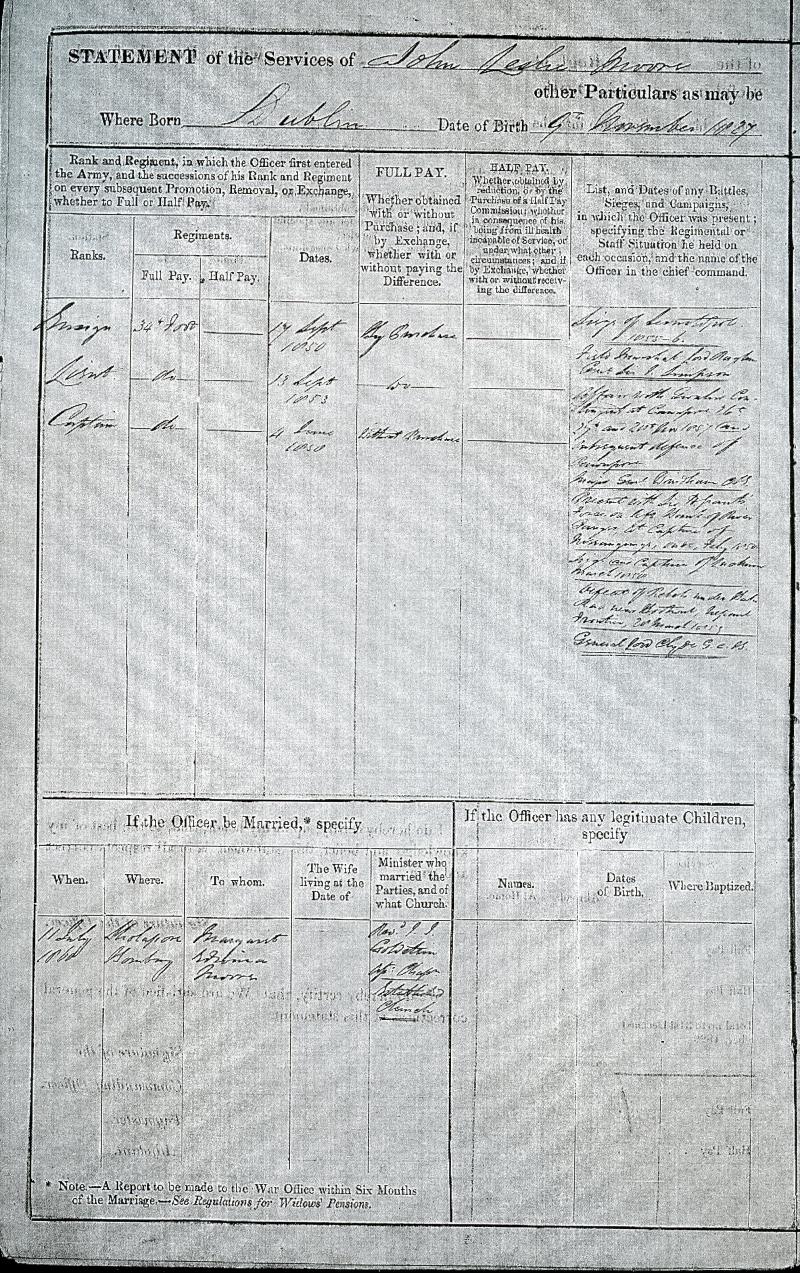 STATEMENT of the Services of John Leslie Moore
other Particulars as may be
Where Born Dublin Date of Birth 9th November 1837
Rank and Regiment, in which the Officer first entered
the Army, and the successions of his Rank and Regiment
on every subsequent Promotion, Removal, or Exchange,
whether to Full or Half Pay.
Ranks.
Regiments.
Full Pay.
Half Pay.
Dates.
FULL PAY.
Whether obtained
with or without
Purchase; and, if
by Exchange,
whether with or
without paying the
Difference.
HALF PAY.
Whether obtained by
reduction, or by the
Purchase of a Half Pay
Commission; whether
in consequence of his
being from ill health
incapable of Service, or
under what other
circumstances; and if
by Exchange, whether
with or without receiv-
ing the difference.
List, and Dates of any Battles,
Sieges, and Campaigns,
in which the Officer was present;
specifying the Regimental or
Staff Situation he held on
each occasion, and the name of the
Officer in the chief command.
Ensign 34th Foot 17 Sept By Purchase
1850
Lieut do 13 Sept do
1853
Captain do 4 June Without Purchase
1858
Siege of Sevastopol
1855-6.
Field Marshal Lord Raglan
Genl Sir J. Simpson
Affair with Gwalior Con-
tingent at Cawnpore 26th
27th and 28th Nov 1857 and
subsequent defence of
Cawnpore
Major Genl Windham CB
Present with Sir H Grant's
Force on
at Capture of
Feby 1858
Siege and Capture of Lucknow
March 1858
Defeat of Rebels under
Rao near Nepaul
Frontier, 28 March
General Lord Clyde G.C.B.
If the Officer be Married,* specify
When.
Where.
To whom.
The Wife
living at the
Date of
Minister who
married the
Parties, and of
what Church.
If the Officer has any legitimate Children,
specify
Names.
Dates
of Birth.
Where Baptized.
11 July Sholapore Margaret Revd J. J.
1860 Bombay Edwina
Moore
Established
Church
* Note.—A Report to be made to the War Office within Six Months
of the Marriage.—See Regulations for Widows' Pensions.